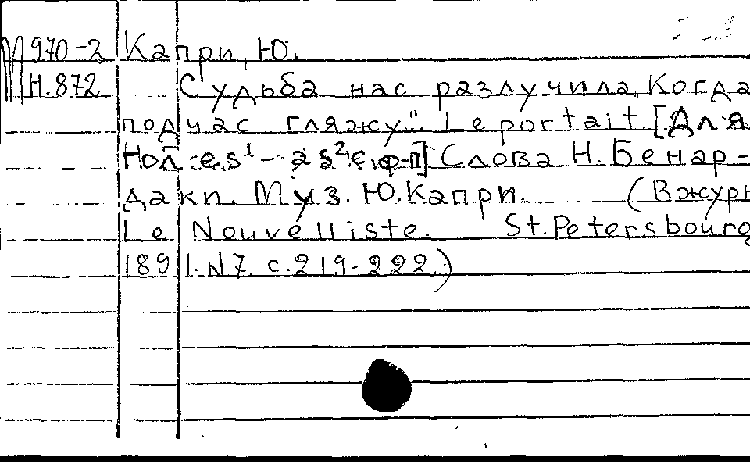 М 970-2 Капри, Ю.
Н.872 Судьба нас разлучила, Когда
подчас гляжу". Le portait [Для
es¹-as² с ф-п] Слова Н. Бенар-
даки. Муз. Ю. Капри. (В журн
Le Nouvelliste. St. Petersbourg
1891. N7. с. 219-222.)